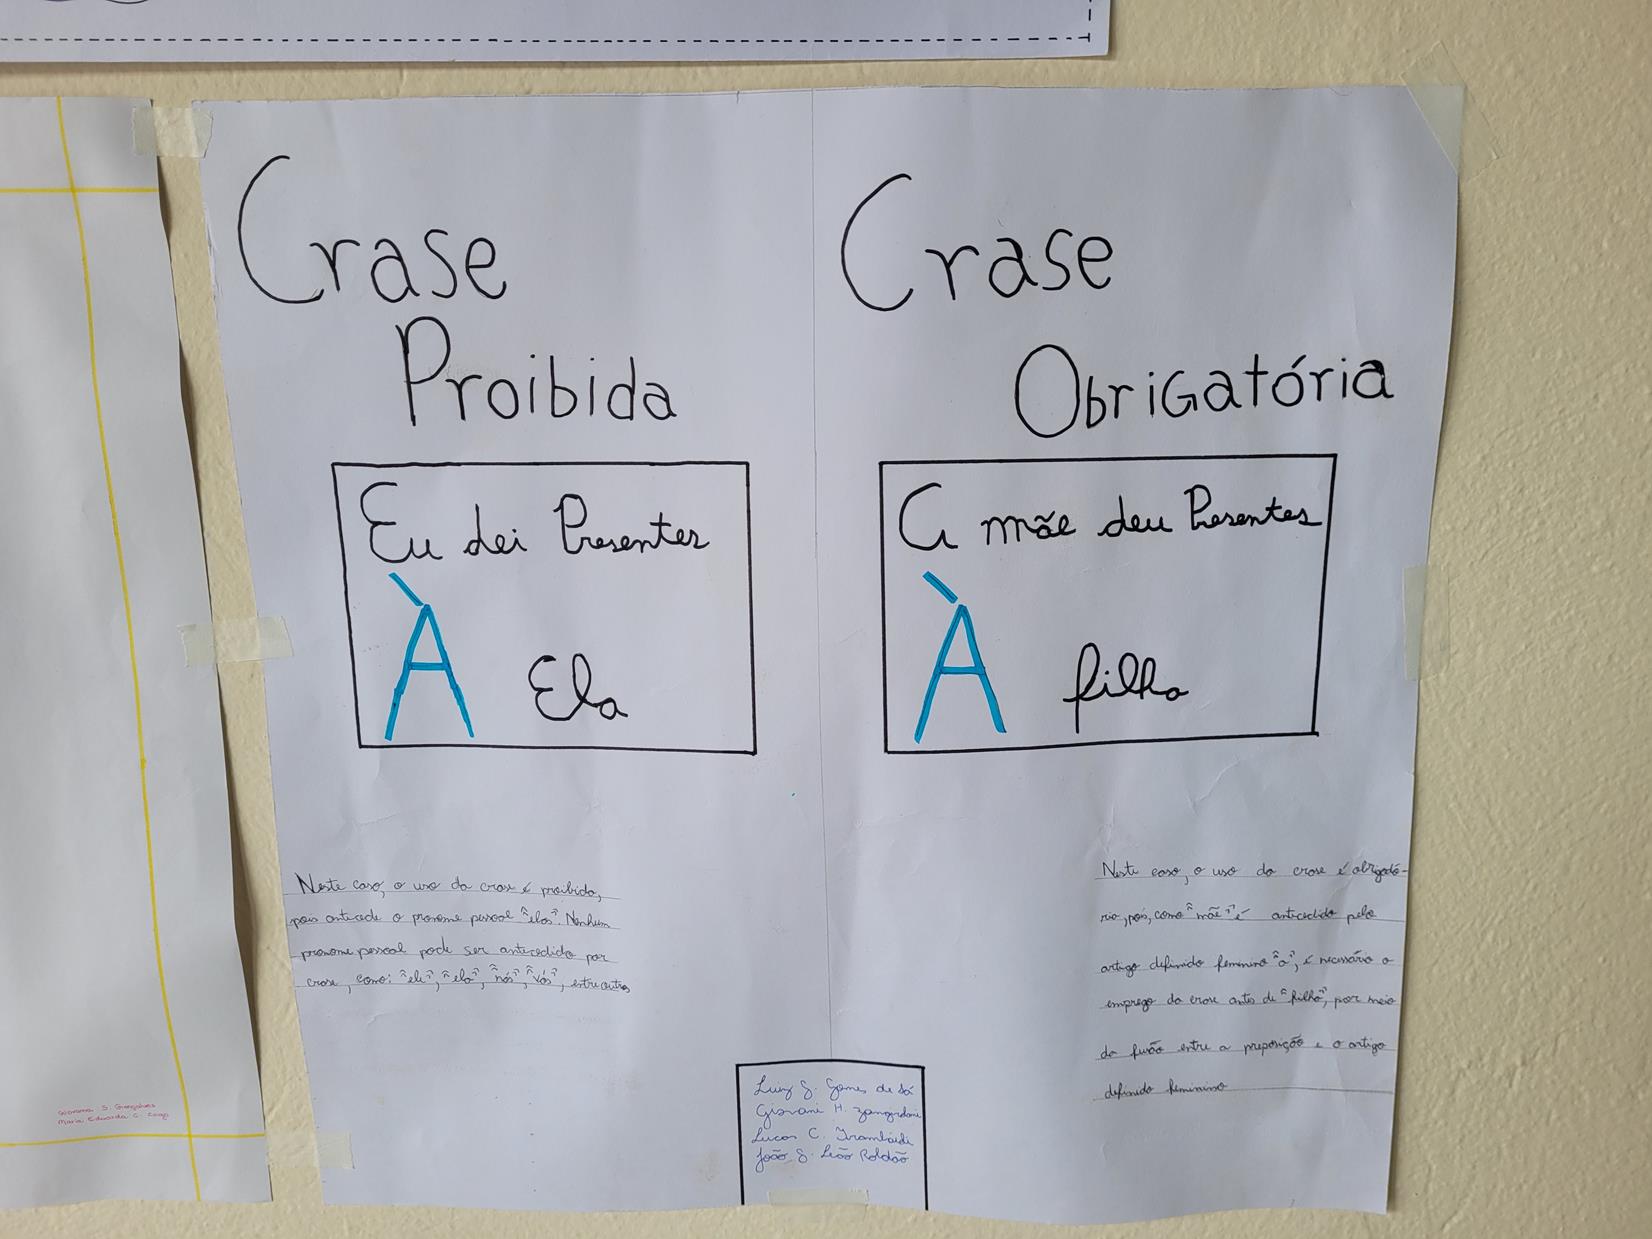 Crase
Proibida
Eu dei Presentes
À Ela
Neste caso, o uso da crase é proibido,
pois antecede o pronome pessoal "elas". Nenhum
pronome pessoal pode ser antecedido por
crase, como: "ele", "ela", "nós", "vós", entre outros
Crase
Obrigatória
A mãe deu Presentes
À filha
Neste caso, o uso da crase é obrigató-
rio, pois, como "mãe" é antecedido pelo
artigo definido feminino "a", é necessário o
emprego da crase antes de "filha", por meio
da fusão entre a preposição e o artigo
definido feminino
Luiz G. Gomes de Sá
Giovani H.
Lucas C.
João G. Leão Roldão
Giovanna S. Gonçalves
Maria Eduarda C.